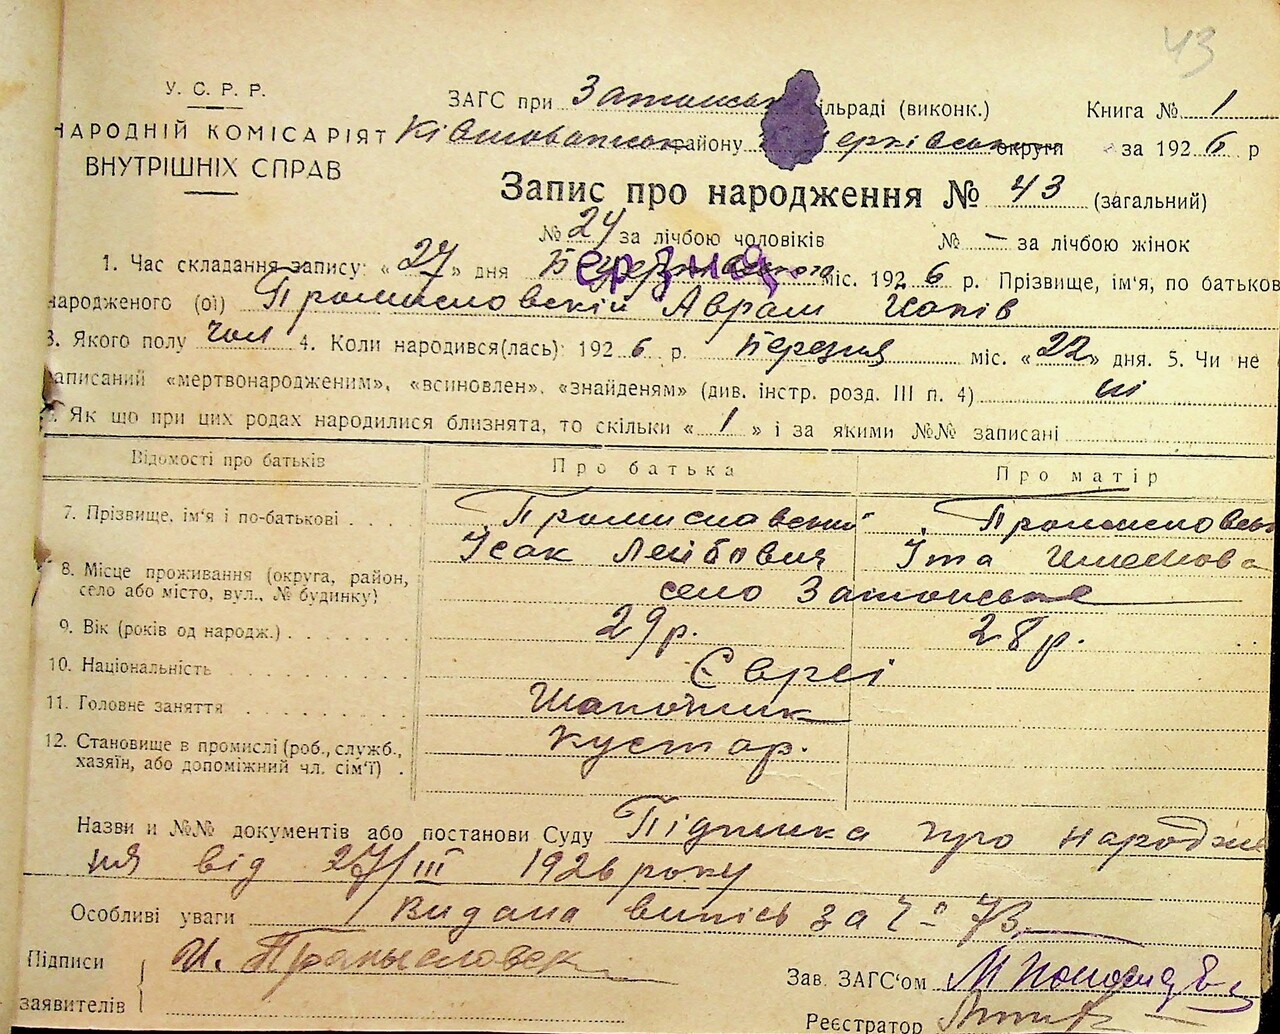 43
У. С. Р. Р.
НАРОДНІЙ КОМІСАРІЯТ
ВНУТРІШНІХ СПРАВ
ЗАГС при Затонськ ільраді (виконк.) Книга № 1
району округи за 1926 р
Запис про народження № 43 (загальний)
№ 24 за лічбою чоловіків № — за лічбою жінок
1. Час складання запису: «27» дня Березня міс. 1926 р. Прізвище, ім'я, по батьков
народженого (ої) Промисловскій Аврам
3. Якого полу чол 4. Коли народився(лась): 1926 р. березня міс. «22» дня. 5. Чи не
записаний «мертвонародженим», «всиновлен», «знайденям» (див. інстр. розд. III п. 4) ні
Як що при цих родах народилися близнята, то скільки « 1 » і за якими №№ записані
Відомості про батьків Про батька Про матір
7. Прізвище, ім'я і по-батькові . . . Промиславский Промисловськ
Ісак Лейбович Іта
8. Місце проживання (округа, район,
село або місто, вул., № будинку) село Затонське
9. Вік (років од народж.) . . . 29р. 28р.
10. Національність Євреі
11. Головне заняття Шапочник
12. Становище в промислі (роб., служб.,
хазяїн, або допоміжний чл. сім'ї) . Кустар.
Назви и №№ документів або постанови Суду Підписка про народжен
ня від 27/III 1926 року
Особливі уваги Видана випісь за
Підписи
заявителів И. Промысловск
Зав. ЗАГС'ом
Реєстратор